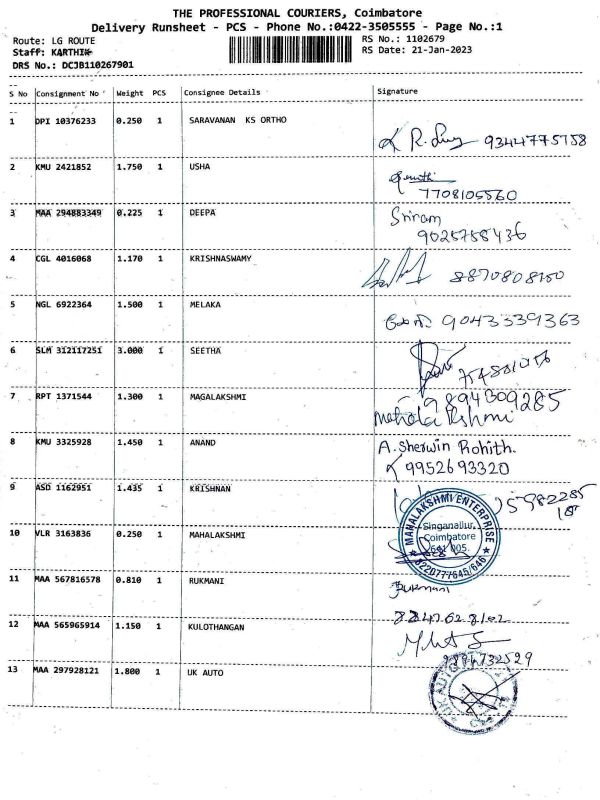 THE PROFESSIONAL COURIERS, Coimbatore
Delivery Runsheet - PCS - Phone No.:0422-3505555 - Page No.:1
Route: LG ROUTE RS No.: 1102679
Staff: KARTHIK RS Date: 21-Jan-2023
DRS No.: DCJB110267901
S No Consignment No Weight PCS Consignee Details Signature
1 DPI 10376233 0.250 1 SARAVANAN KS ORTHO
9344775758
2 KMU 2421852 1.750 1 USHA
7708105560
3 MAA 294883349 0.225 1 DEEPA Sriram
9025758436
4 CGL 4016068 1.170 1 KRISHNASWAMY
8870808150
5 NGL 6922364 1.500 1 MELAKA
9043339363
6 SLM 312117251 3.000 1 SEETHA
7 RPT 1371544 1.300 1 MAGALAKSHMI 9894309285
Mahalakshmi
8 KMU 3325928 1.450 1 ANAND A. Sherwin Rohith.
9952693320
9 ASD 1162951 1.435 1 KRISHNAN
MAHALAKSHMI ENTERPRISE
Singanallur,
Coimbatore
641 005.
10 VLR 3163836 0.250 1 MAHALAKSHMI
11 MAA 567816578 0.810 1 RUKMANI Rukmani
12 MAA 565965914 1.150 1 KULOTHANGAN
13 MAA 297928121 1.800 1 UK AUTO